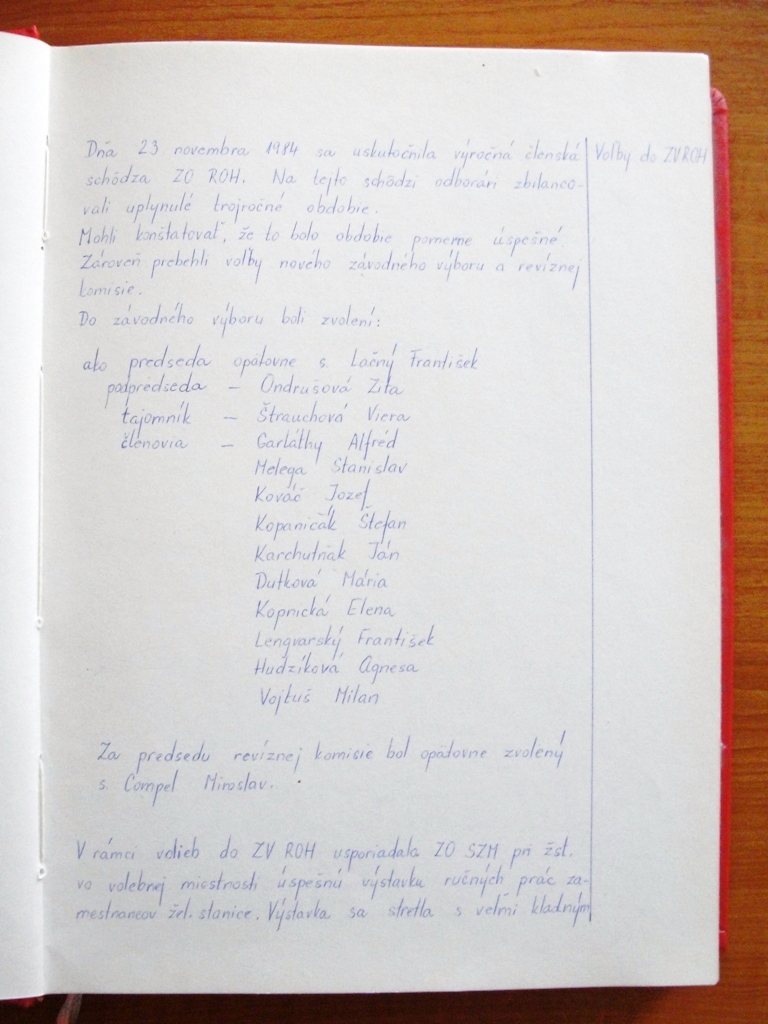 Dňa 23 novembra 1984 sa uskutočnila výročná členská
Voľby do ZV ROH
schôdza ZO ROH. Na tejto schôdzi odborári zbilanco-
vali uplynulé trojročné obdobie.
Mohli konštatovať, že to bolo obdobie pomerne úspešné.
Zároveň prebehli voľby nového závodného výboru a revíznej
komisie.
Do závodného výboru boli zvolení:
ako predseda opätovne s. Lačný František
podpredseda – Ondrušová Zita
tajomník – Štrauchová Viera
členovia – Garláthy Alfréd
Melega Stanislav
Kováč Jozef
Kopaničák Štefan
Karchutňák Ján
Dutková Mária
Kopnická Elena
Lengvarský František
Hudzíková Agnesa
Vojtuš Milan
Za predsedu revíznej komisie bol opätovne zvolený
s. Compel Miroslav.
V rámci volieb do ZV ROH usporiadala ZO SZM pri žst.
vo volebnej miestnosti úspešnú výstavku ručných prác za-
mestnancov žel. stanice. Výstavka sa stretla s veľmi kladným